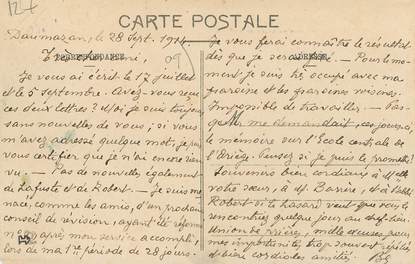 CARTE POSTALE
Daumazan, le 28 Sept. 1914
CORRESPONDANCE
ADRESSE
ami,
Je vous ai écrit le 17 juillet
et le 5 septembre. Avez-vous reçu
ces deux lettres? Moi je suis toujours
sans nouvelles de vous; si vous
m'avez adressé quelque mot, je puis
vous certifier que je n'ai encore rien
vu - Pas de nouvelles également
de Lafuste et de Robert. - Je suis me-
nacé, comme les amis, d'un prochain
conseil de révision, ayant été réformé
après mon service accompli,
lors de ma 1re période de 28 jours.
Je vous ferai connaître le résultat
dès que je serai - Pour le mo-
ment je suis très occupé avec ma
et les
Impossible de travailler. -
me demandait, ces jours-ci
le mémoire sur l'Ecole centrale de
l'Ariège. Pensez si je puis le promettre!
Souvenirs bien cordiaux à Melle
votre sœur, à M. Barière, et à
Robert si le hasard veut que vous le
rencontriez quelque jour au
Union de prières, mille excuses pour
mes importunités, trop souvent répétées
et bien cordiales amitiés.